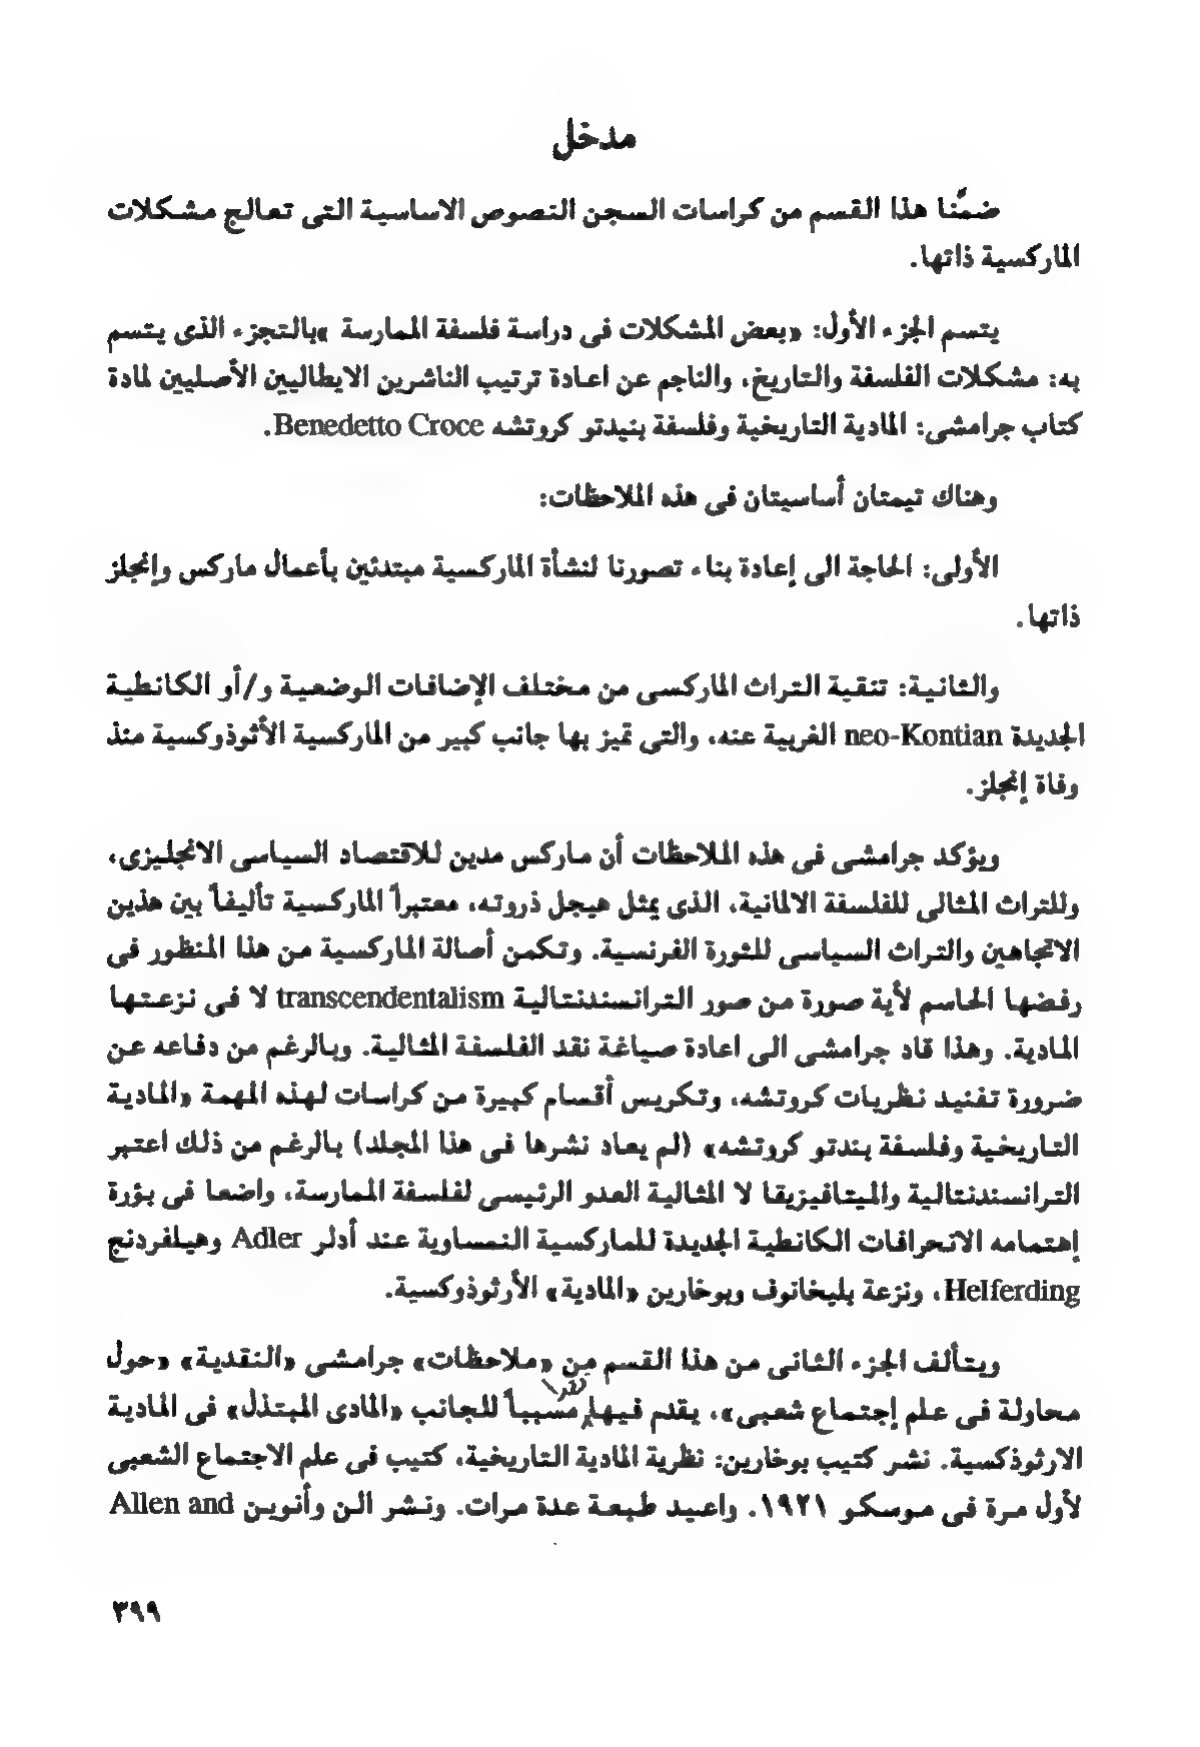 مدخل
ضمّنا هذا القسم من كراسات السجن النصوص الاساسية التى تعالج مشكلات
الماركسية ذاتها.
يتسم الجزء الأول: «بعض المشكلات فى دراسة فلسفة الممارسة »بالتجزء الذى يتسم
به: مشكلات الفلسفة والتاريخ، والناجم عن اعادة ترتيب الناشرين الايطاليين الأصليين لمادة
كتاب جرامشى: المادية التاريخية وفلسفة بنيدتو كروتشه Benedetto Croce.
وهناك تيمتان أساسيتان فى هذه الملاحظات:
الأولى: الحاجة الى إعادة بناء تصورنا لنشأة الماركسية مبتدئين بأعمال ماركس وإنجلز
ذاتها.
والثانية: تنقية التراث الماركسى من مختلف الإضافات الوضعية و/أو الكانطية
الجديدة neo-Kontian الغريبة عنه، والتى تميز بها جانب كبير من الماركسية الأثوذوكسية منذ
وفاة إنجلز.
ويؤكد جرامشى فى هذه الملاحظات أن ماركس مدين للاقتصاد السياسى الانجليزى،
وللتراث المثالى للفلسفة الالمانية، الذى يمثل هيجل ذروته، معتبراً الماركسية تأليفاً بين هذين
الاتجاهين والتراث السياسى للثورة الفرنسية. وتكمن أصالة الماركسية من هذا المنظور فى
رفضها الحاسم لأية صورة من صور الترانسندنتالية transcendentalism لا فى نزعتها
المادية. وهذا قاد جرامشى الى اعادة صياغة نقد الفلسفة المثالية. وبالرغم من دفاعه عن
ضرورة تفنيد نظريات كروتشه، وتكريس أقسام كبيرة من كراسات لهذه المهمة «المادية
التاريخية وفلسفة بندتو كروتشه» (لم يعاد نشرها فى هذا المجلد) بالرغم من ذلك اعتبر
الترانسندنتالية والميتافيزيقا لا المثالية العدو الرئيسى لفلسفة الممارسة، واضعا فى بؤرة
إهتمامه الانحرافات الكانطية الجديدة للماركسية النمساوية عند أدلر Adler وهيلفردنج
Helferding، ونزعة بليخانوف وبوخارين «المادية» الأرثوذوكسية.
ويتألف الجزء الثانى من هذا القسم من «ملاحظات» جرامشى «النقدية» «حول
محاولة فى علم إجتماع شعبى»، يقدم فيها نقدا مسبباً للجانب «المادى المبتذل» فى المادية
الارثوذكسية. نشر كتيب بوخارين: نظرية المادية التاريخية، كتيب فى علم الاجتماع الشعبى
لأول مرة فى موسكو ١٩٢١. واعيد طبعة عدة مرات. ونشر الن وأنوين Allen and
٣٩٩